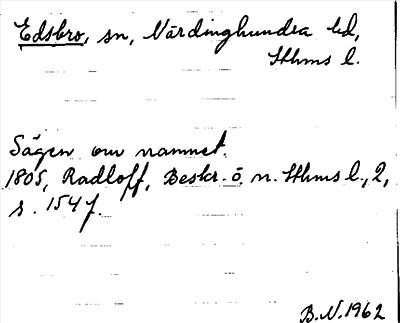 Edsbro, sn, Närdinghundra hd,
Sthms l.
Sägen om namnet.
1805, Radloff, Beskr. ö. n. Sthms l., 2,
s. 154 f.
B.N. 1962